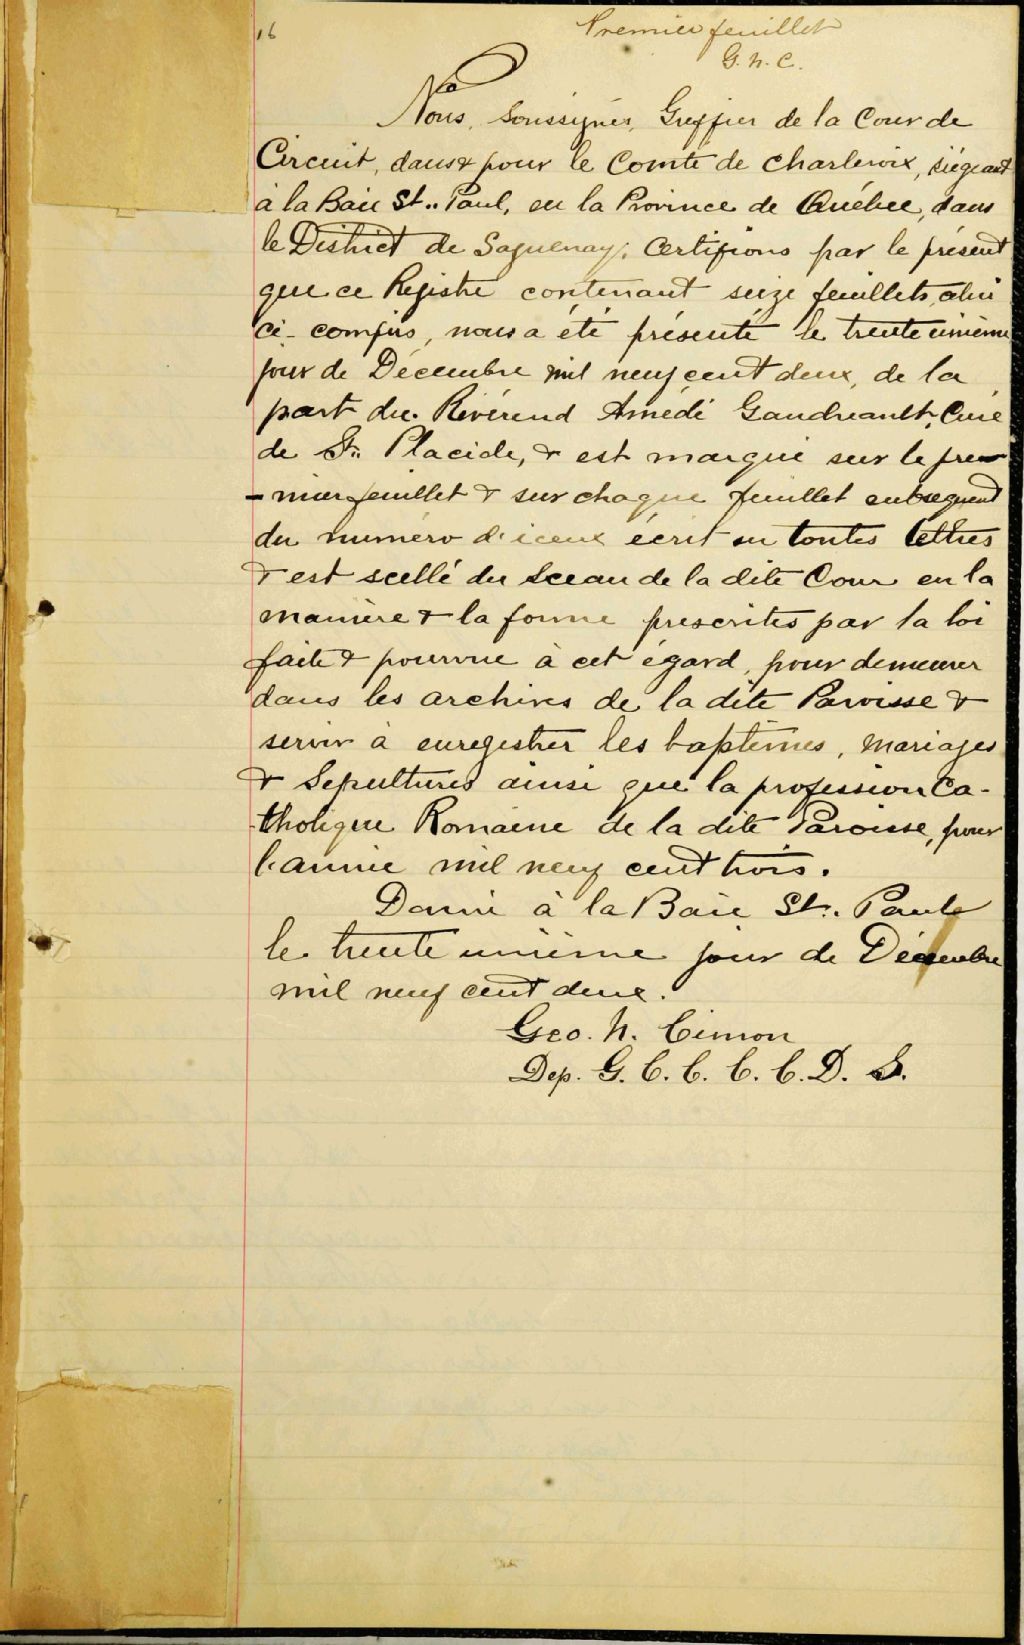 16
Premier feuillet
G. N. C.
Nous, Soussignés, Greffier de la Cour de
Circuit, dans & pour le Comté de Charlevoix, siégeant
à la Baie St. Paul, en la Province de Québec, dans
le District de Saguenay, Certifions par le présent
que ce Registre contenant seize feuillets, celui
ci-compris, nous a été présenté le trente unième
jour de Décembre mil neuf cent deux, de la
part du Révérend Amédé Gaudreault, Curé
de St. Placide, & est marqué sur le pre-
-mier feuillet & sur chaque feuillet subsequent
du numéro d'iceux écrit en toutes lettres
& est scellé du Sceau de la dite Cour en la
manière & la forme prescrites par la loi
faite & pourvue à cet égard, pour demeurer
dans les archives de la dite Paroisse &
servir à enregistrer les baptêmes, mariages
& Sépultures ainsi que la profession Ca-
tholique Romaine de la dite Paroisse, pour
l'année mil neuf cent trois.
Donné à la Baie St. Paul
le trente unième jour de Décembre
mil neuf cent deux.
Geo. N. Cimon
Dep. G. C. C. C. C. D. S.